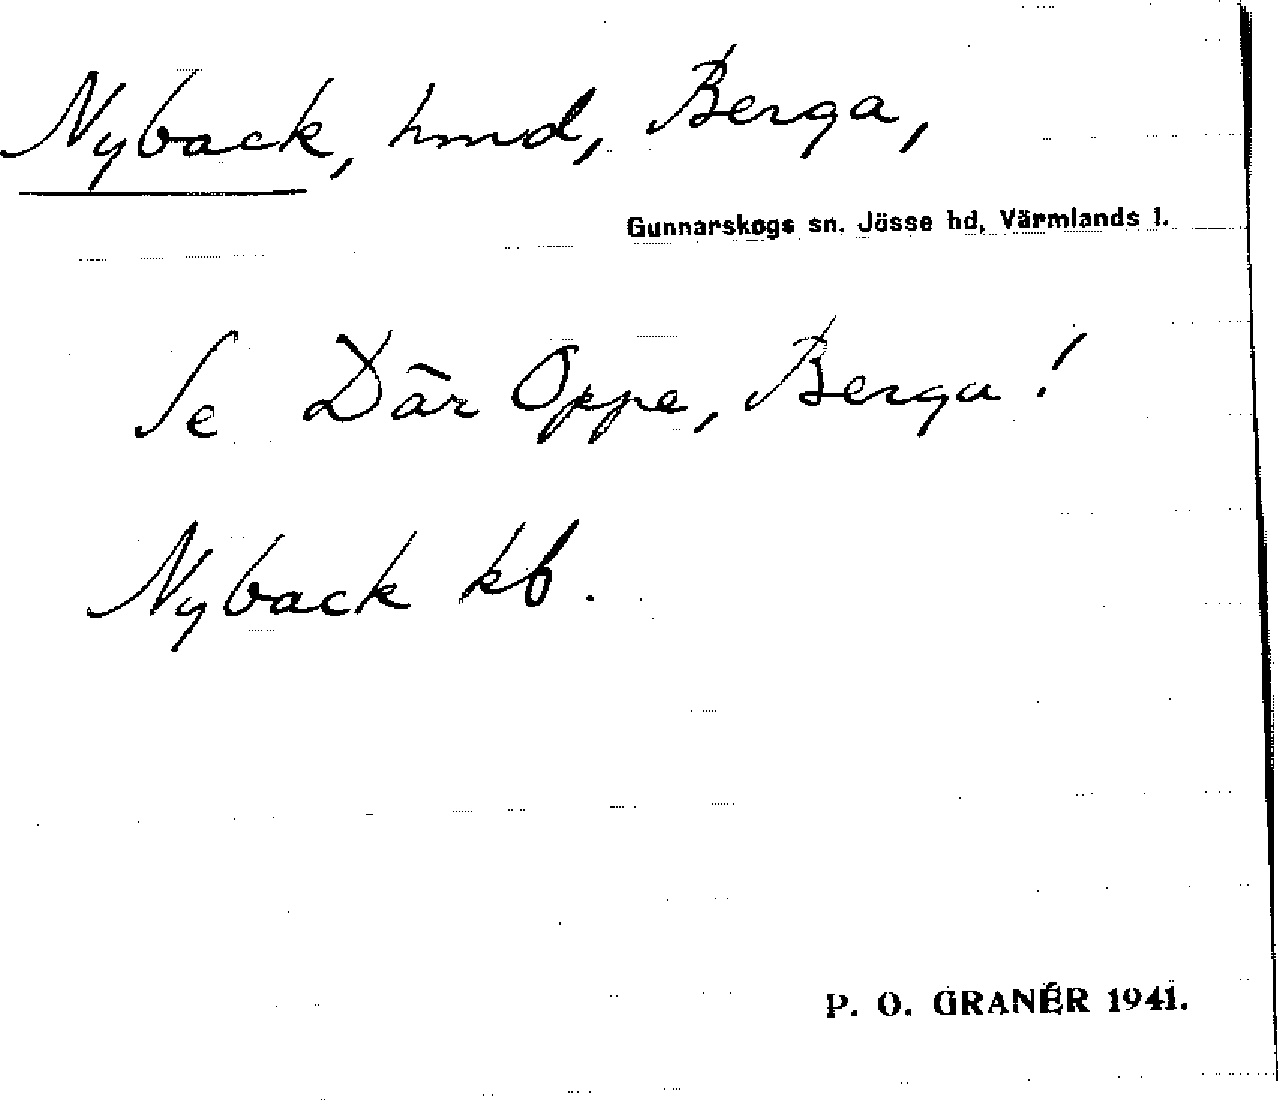 Nyback, hmd, Berga,
Gunnarskogs sn. Jösse hd, Värmlands l.
Se Där Oppe, Berga!
Nyback kb.
P. O. GRANÉR 1941.